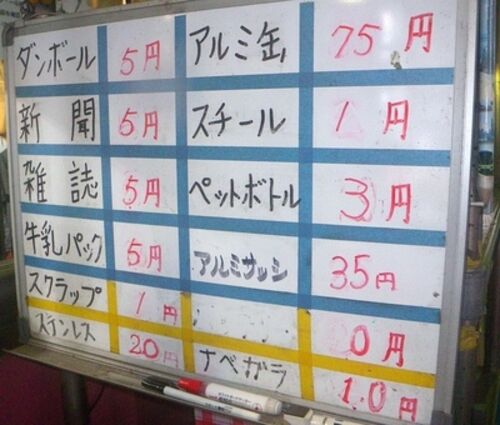 ダンボール 5円 アルミ缶 75円
新聞 5円 スチール 1円
雑誌 5円 ペットボトル 3円
牛乳パック 5円 アルミサッシ 35円
スクラップ 1円 0円
ステンレス 20円 ナベガラ 1.0円